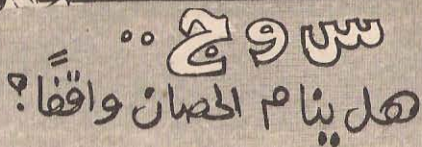 س و ج ..
هل ينام الحصان واقفًا؟